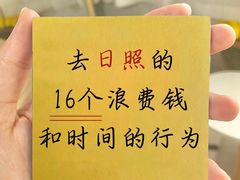 去日照的
16个浪费钱
和时间的行为